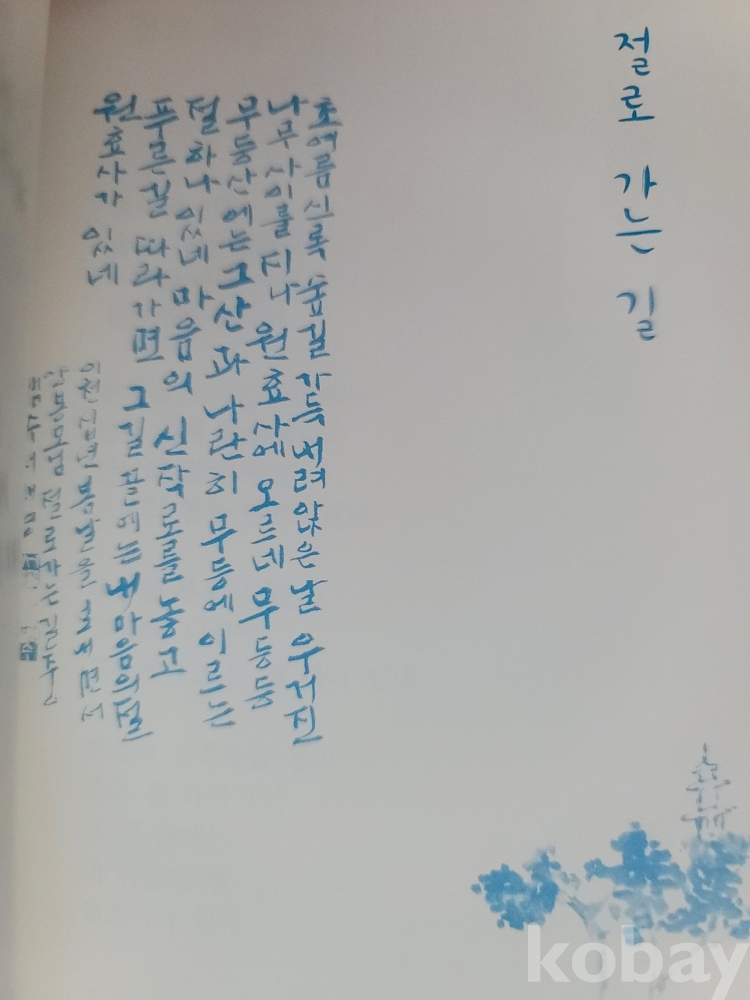 절로 가는 길
초여름 신록 숲길 가득 내려앉은 날 우거진
나무 사이를 지나 원효사에 오르네 무등등
무등산에는 그 산과 나란히 무등에 이르는
절 하나 있네 마음의 신작로를 놓고
푸른길 따라가면 그길 끝에는 내 마음의 절
원효사가 있네
이천십년 봄날을 보내면서
절로가는 길 중
kobay